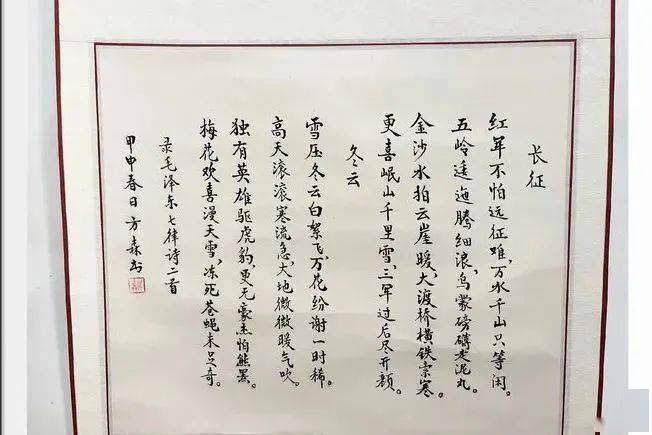 长征
红军不怕远征难，万水千山只等闲。
五岭逶迤腾细浪，乌蒙磅礴走泥丸。
金沙水拍云崖暖，大渡桥横铁索寒。
更喜岷山千里雪，三军过后尽开颜。
冬云
雪压冬云白絮飞，万花纷谢一时稀。
高天滚滚寒流急，大地微微暖气吹。
独有英雄驱虎豹，更无豪杰怕熊罴。
梅花欢喜漫天雪，冻死苍蝇未足奇。
录毛泽东七律诗二首
甲申春日方森书